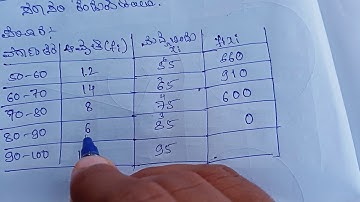 ವರ್ಗಾಂತರ ಆವೃತ್ತಿ(fi) ಮಧ್ಯಬಿಂದು xi fixi
50-60 12 55 660
60-70 14 65 910
70-80 8 75 600
80-90 6 85 0
90-100 95